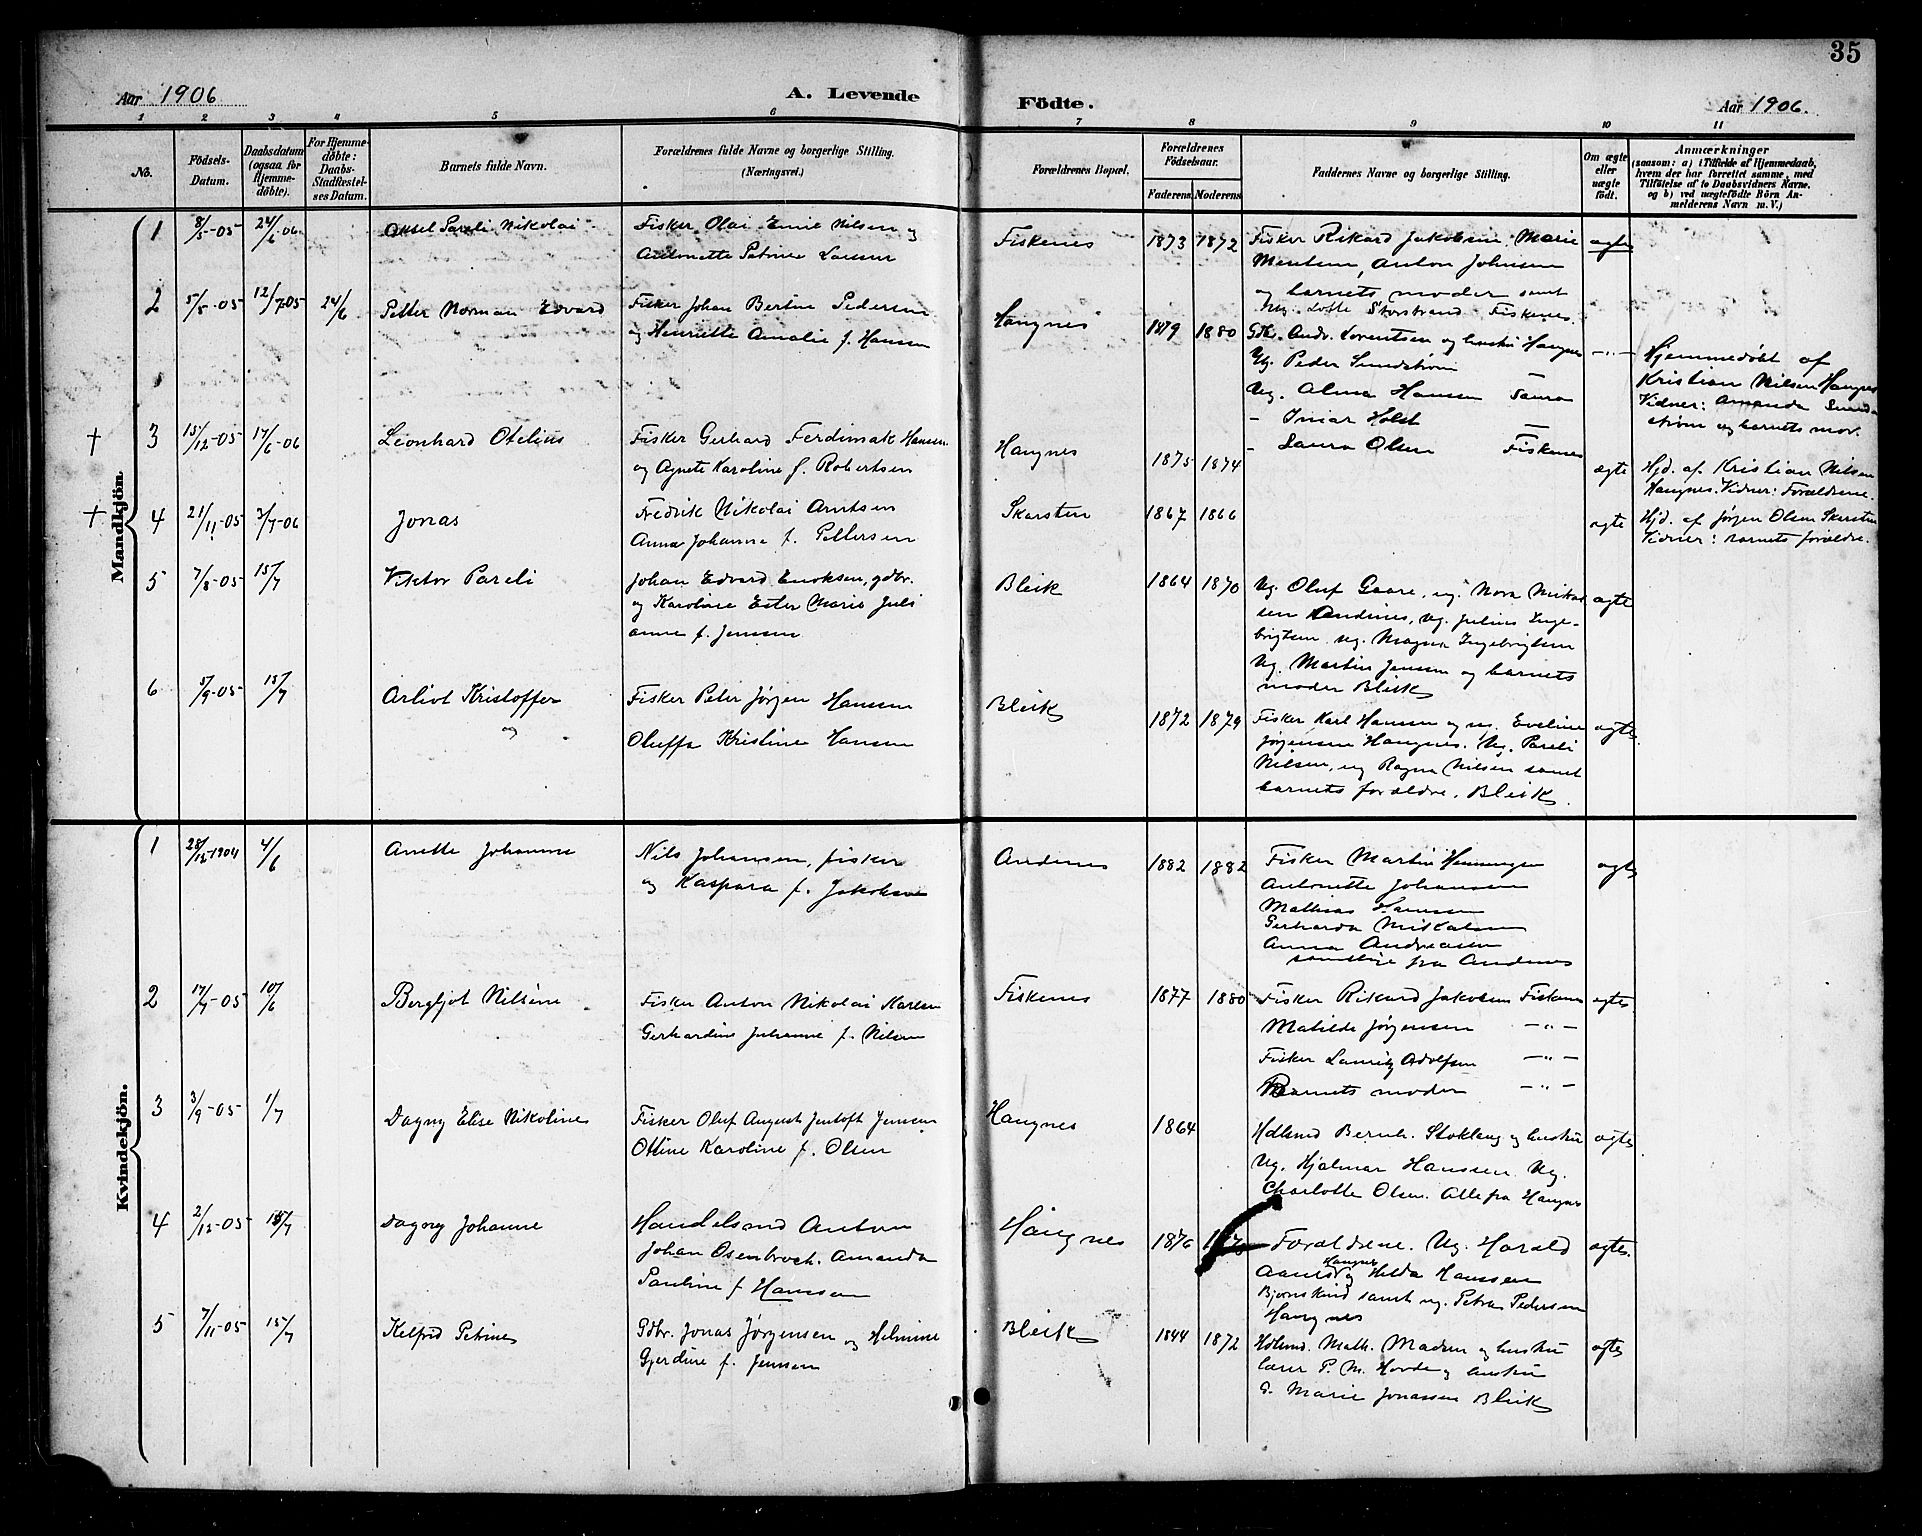 35
Aar 1906 A. Levende Födte. Aar 1906.
1 2 3 4 5 6 7 8 9 10 11
No. Födsels-Datum. Daabsdatum (ogsaa for Hjemme-döbte). For Hjemme-döbte: Daabs-Stadfæstel-ses Datum. Barnets fulde Navn. Forældrenes fulde Navne og borgerlige Stilling. (Næringsvei.) Forældrenes Bopæl. Forældrenes Födselsaar. Faderens. Moderens. Faddernes Navne og borgerlige Stilling. Om ægte eller uægte födt. Anmærkninger
(saasom: a) i Tilfælde af Hjemmedaab,
hvem der har forrettet samme, med
Tilföielse af to Daabsvidners Navne,
og b) ved uægtefödte Börn An-
melderens Navn m. V.)
Mandkjön.
1 8/5-05 24/6-06 Aksel Pareli Nikolai Fisker Olai Emil Nilsen og Fiskenes 1873 1872 Fisker Rikard Jakobsen, Marie ægte
Antonette Petrine Larsen
Anton Johnsen
og barnets moder samt
Ug. Lotte Storstrand Fiskenes.
2 5/5-05 12/7-05 24/6 Petter Norman Edvard Fisker Johan Bertin Pedersen Haugnes 1879 1880 Gbr. Andr. Lorentsen og hustru Haugnes -"- Hjemmedøbt af
og Henriette Amalie f. Hansen
Ug. Peder Sundstrøm
Kristian Nilsen Haugnes
Ug. Alma Hansen Saura
Vidner: Amanda Sund-
- Imar Holst
strøm og barnets mor.
- Laura Olsen Fiskenes
† 3 15/12-05 17/6-06 Leonhard Otelius Fisker Gerhard Ferdinak Hansen Haugnes 1875 1874 ægte Hjd. af Kristian Nilsen
og Agnete Karoline f. Robertsen
Haugnes. Vidner: Forældrene.
† 4 21/11-05 3/7-06 Jonas Fredrik Nikolai Arntsen Skarsten 1867 1866 ægte Hjd. af Jørgen Olsen Skarsten
Anna Johanne f. Pettersen
Vidner: barnets forældre.
5 7/8-05 15/7 Viktor Pareli Johan Edvard Enoksen, gdbr. Bleik 1864 1870 Ug. Oluf Gaare, ug. Nora Mikal- ægte
og Karoline Ester Marie Juli
sen Andenes, ug. Julius Inge-
anne f. Jensen
brigtsen, ug. Magna Ingebrigtsen
Ug. Martin Jensen og barnets
moder Bleik
6 5/9-05 15/7 Arliot Kristoffer Fisker Peter Jørgen Hansen Bleik 1872 1879 Fisker Karl Hansen og ug. Eveline ægte
og
Oluffa Kristine Hansen
Jørgensen Haugnes. Ug. Pareli
Nilsen, ug Ragna Nilsen samt
barnets forældre. Bleik.
Kvindekjön.
1 28/12-1904 4/6 Anette Johanne Nils Johansen, fisker Andenes 1882 1882 Fisker Martin Henningsen ægte
og Kaspara f. Jakobsen
Antonette Johansen
Mathias Hanssen
Gerharda Mikalsen
Anna Andreasen
samtlige fra Andenes
2 17/7-05 10/6 Bergljot Nilsine Fisker Anton Nikolai Karlsen Fiskenes 1877 1880 Fisker Rikard Jakobsen Fiskenes ægte
Gerhardine Johanne f. Nilsen
Matilde Jørgensen -"-
Fisker Lauritz Adolfsen -"-
Barnets moder -"-
3 3/9-05 1/7 Dagny Elise Nikoline Fisker Oluf August Jentoft Jensen Haugnes 1864 Hdlsmd Bernh. Stoklang og hustru ægte
Ottine Karoline f. Olsen
Ug. Hjalmar Hanssen. Ug.
Charlotte Olsen. Alle fra Haugnes
4 2/12-05 15/7 Dagny Johanne Handelsmd Anton Haugnes 1876 Forældrene. Ug. Harald ægte.
Johan Osenbroch. Amanda
Haugnes
og Helda Hanssen
Pauline f Hanssen
Bjørnskind samt ug. Petra Pedersen
Haugnes
5 7/11-05 15/7 Kelfrid Petrine Gdbr. Jonas Jørgensen og Helmine Bleik 1844 1872 Hdlsmd. Math. Madsen og hustru ægte
Gjerdine f. Jenssen
Lærer P. M. Hovde og hustru
Marie Jonassen Bleik